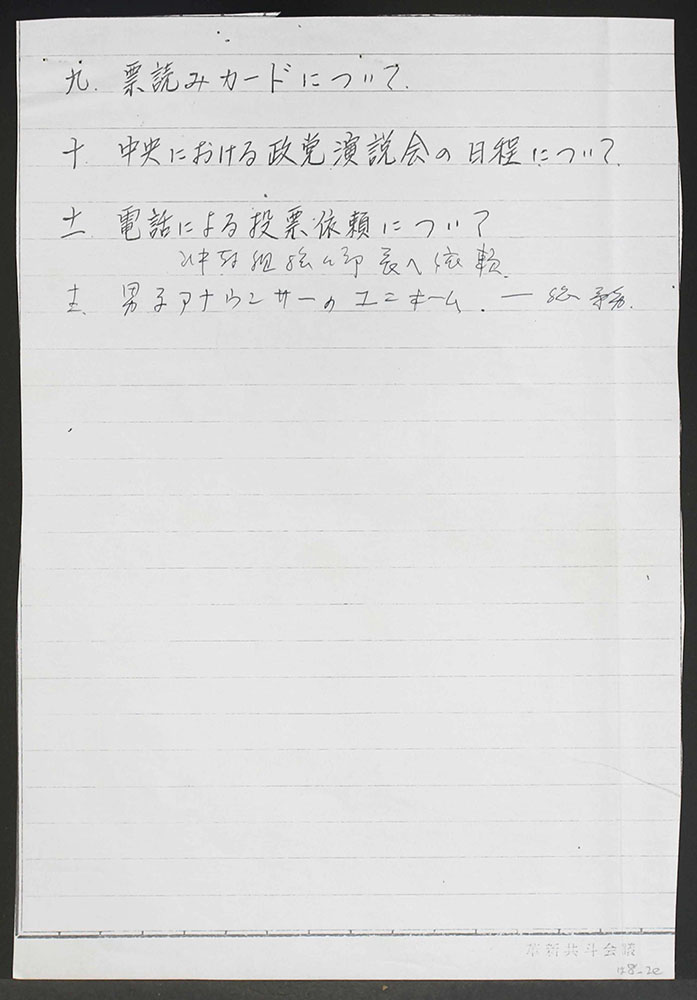 九. 票読みカードについて.
十. 中央における政党演説会の日程について.
十一 電話による投票依頼について
組織部長へ依頼.
十二. 男子アナウンサーのユニホーム. ― 総務.
革新共斗会議